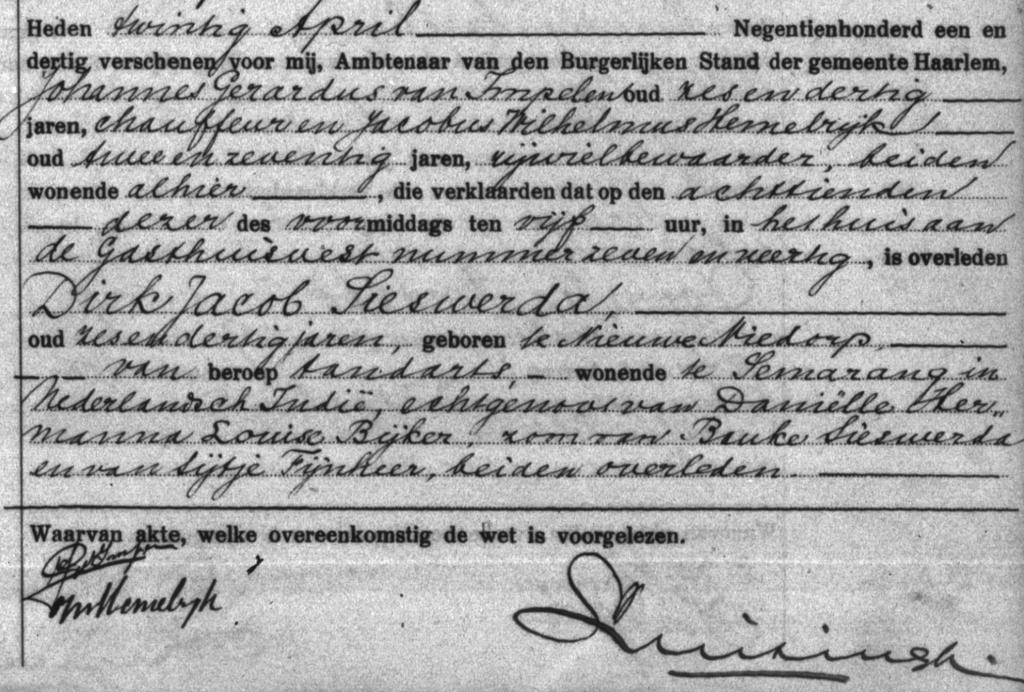 Heden twintig April Negentienhonderd een en
dertig verschenen voor mij, Ambtenaar van den Burgerlijken Stand der gemeente Haarlem,
Johannes Gerardus van Impelen oud zes en dertig
jaren, chauffeur en Jacobus Wilhelmus Hemelrijk
oud twee en zeventig jaren, rijwielbewaarder, beiden
wonende alhier, die verklaarden dat op den achttienden
dezer des voormiddags ten vijf uur, in het huis aan
de Gasthuisvest nummer zeven en veertig, is overleden
Dirk Jacob Sieswerda,
oud zes en dertig jaren, geboren te Nieuwe Niedorp,
van beroep tandarts, wonende te Semarang in
Nederlandsch Indië, echtgenoot van Daniëlle Her„
manna Louise Bijker, zoon van Bauke Sieswerda
en van Sijtje Fijnheer, beiden overleden.
Waarvan akte, welke overeenkomstig de wet is voorgelezen.
Hemelryk